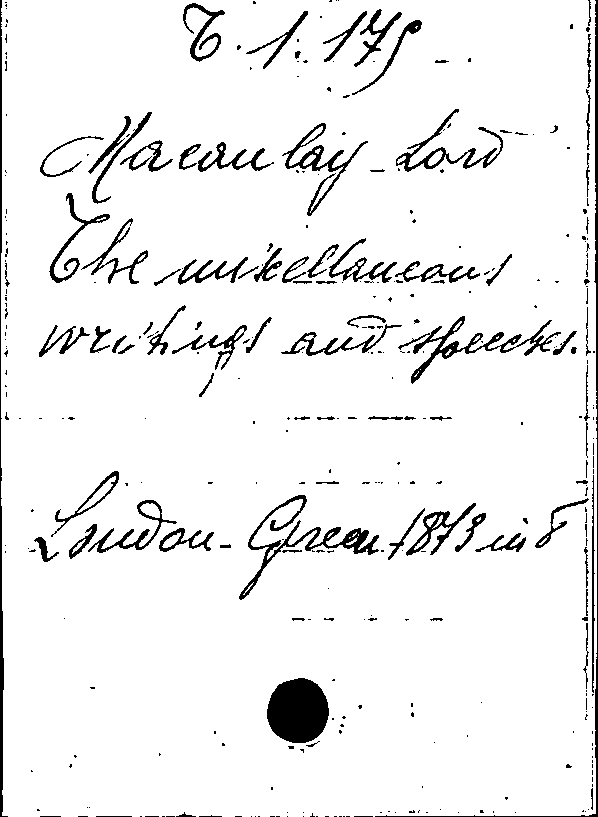 T. 1. 175
Macaulay - Lord
The miscellaneous
writings and speeches.
London - Green 1873 in 8